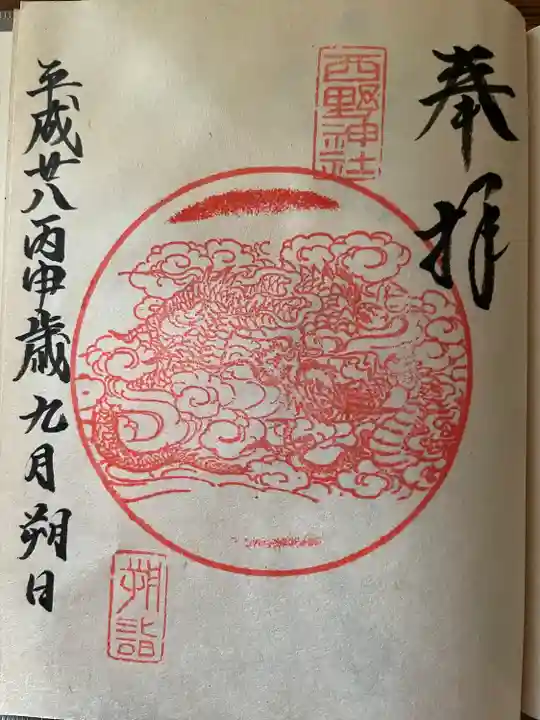 奉拝
西野神社
朔詣
平成廿八丙申歳九月朔日